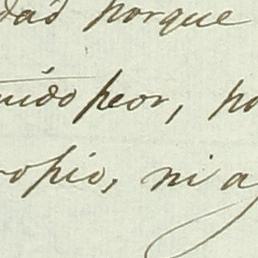 dad porque
nido peor, po
ropio, ni a